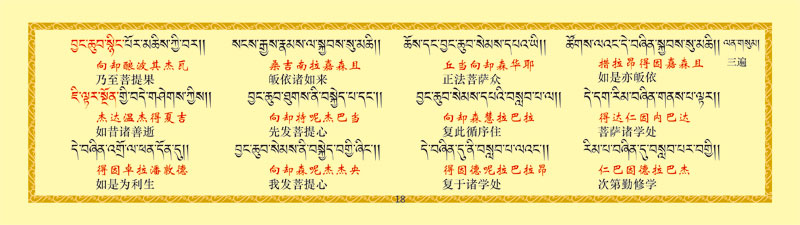 བྱང་ཆུབ་སྙིང་པོར་མཆིས་ཀྱི་བར།། སངས་རྒྱས་རྣམས་ལ་སྐྱབས་སུ་མཆི།། ཆོས་དང་བྱང་ཆུབ་སེམས་དཔའ་ཡི།། ཚོགས་ལའང་དེ་བཞིན་སྐྱབས་སུ་མཆི།། ལན་གསུམ།
向却酿波其杰瓦 桑吉南拉嘉森且 丘当向却森华耶 措拉昂得因嘉森且 三遍
乃至菩提果 皈依诸如来 正法菩萨众 如是亦皈依
ཇི་ལྟར་སྔོན་གྱི་བདེ་གཤེགས་ཀྱིས།། བྱང་ཆུབ་ཐུགས་ནི་བསྐྱེད་པ་དང་། བྱང་ཆུབ་སེམས་དཔའི་བསླབ་པ་ལ།། དེ་དག་རིམ་བཞིན་གནས་པ་ལྟར།།
杰达温杰得夏吉 向却持呢杰巴当 向却森慧拉巴拉 得达仁因内巴达
如昔诸善逝 先发菩提心 复此循序住 菩萨诸学处
དེ་བཞིན་འགྲོ་ལ་ཕན་དོན་དུ།། བྱང་ཆུབ་སེམས་ནི་བསྐྱེད་བགྱི་ཞིང་།། དེ་བཞིན་དུ་ནི་བསླབ་པ་ལའང་།། རིམ་པ་བཞིན་དུ་བསླབ་པར་བགྱི།།
得因卓拉潘敦德 向却森呢杰杰央 得因德呢拉巴拉昂 仁巴因德拉巴杰
如是为利生 我发菩提心 复于诸学处 次第勤修学
18